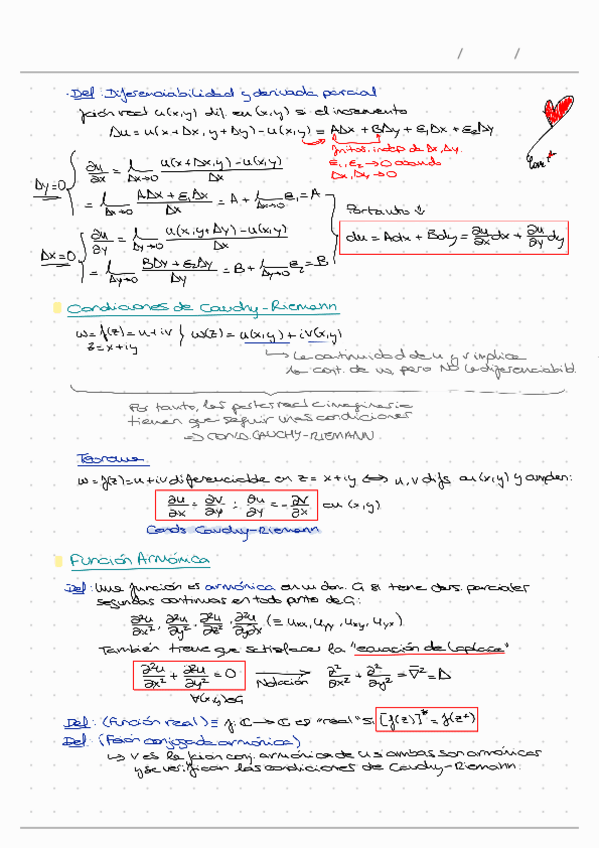 / /
· Def: Diferenciabilidad y derivada parcial
fción real u(x,y) dif. en (x,y) si el incremento
Δu = u(x+Δx, y+Δy) - u(x,y) = AΔx + BΔy + ε₁Δx + ε₂Δy
finitos, indep de Δx, Δy.
ε₁, ε₂ → 0 cuando
Δx, Δy → 0
Love it
Δy=0 { ∂u/∂x = l_{Δx→0} (u(x+Δx,y) - u(x,y))/Δx
= l_{Δx→0} (AΔx + ε₁Δx)/Δx = A + l_{Δx→0} ε₁ = A
Δx=0 { ∂u/∂y = l_{Δy→0} (u(x,y+Δy) - u(x,y))/Δx
= l_{Δy→0} (BΔy + ε₂Δy)/Δy = B + l_{Δy→0} ε₂ = B
Por tanto ↓
du = Adx + Bdy = ∂u/∂x dx + ∂u/∂y dy
Condiciones de Cauchy-Riemann
w = f(z) = u + iv } w(z) = u(x,y) + iv(x,y)
z = x + iy
↳ La continuidad de u y v implica
la cont. de w, pero NO la diferenciabilid.
Por tanto, las partes real e imaginaria
tienen que seguir unas condiciones
⇒ COND. CAUCHY-RIEMANN
Teorema
w = f(z) = u + iv diferenciable en z = x + iy ⟺ u, v difs en (x,y) y cumplen:
∂u/∂x = ∂v/∂y ; ∂u/∂y = -∂v/∂x en (x,y)
Conds Cauchy-Riemann
Función Armónica
Def: Una función es armónica en un dom. G si tiene ders. parciales
segundas continuas en todo punto de G:
∂²u/∂x², ∂²u/∂y², ∂²u/∂z², ∂²u/∂y∂x (≡ uxx, uyy, uxy, uyx)
También tiene que satisfacer la "ecuación de Laplace"
∂²u/∂x² + ∂²u/∂y² = 0 → Notación ∂²/∂x² + ∂²/∂y² = ∇² = Δ
∀(x,y)∈G
Def: (Función real) ≡ f: C → C es "real" si [f(z)]* = f(z*)
Def: (Fción conjugada armónica)
↳ v es la fción conj. armónica de u si ambas son armónicas
y se verifican las condiciones de Cauchy-Riemann.